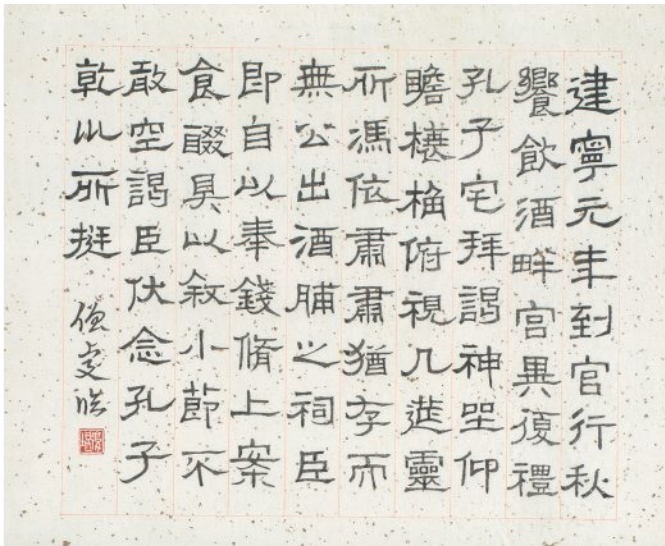 建寧元年到官行秋
饗飲酒畔宮畢復禮
孔子宅拜謁神坐仰
瞻榱桷俯視几筵靈
所馮依肅肅猶存而
無公出酒脯之祠臣
即自以奉錢脩上案
食醊具以敘小節不
敢空謁臣伏念孔子
乾川所挺